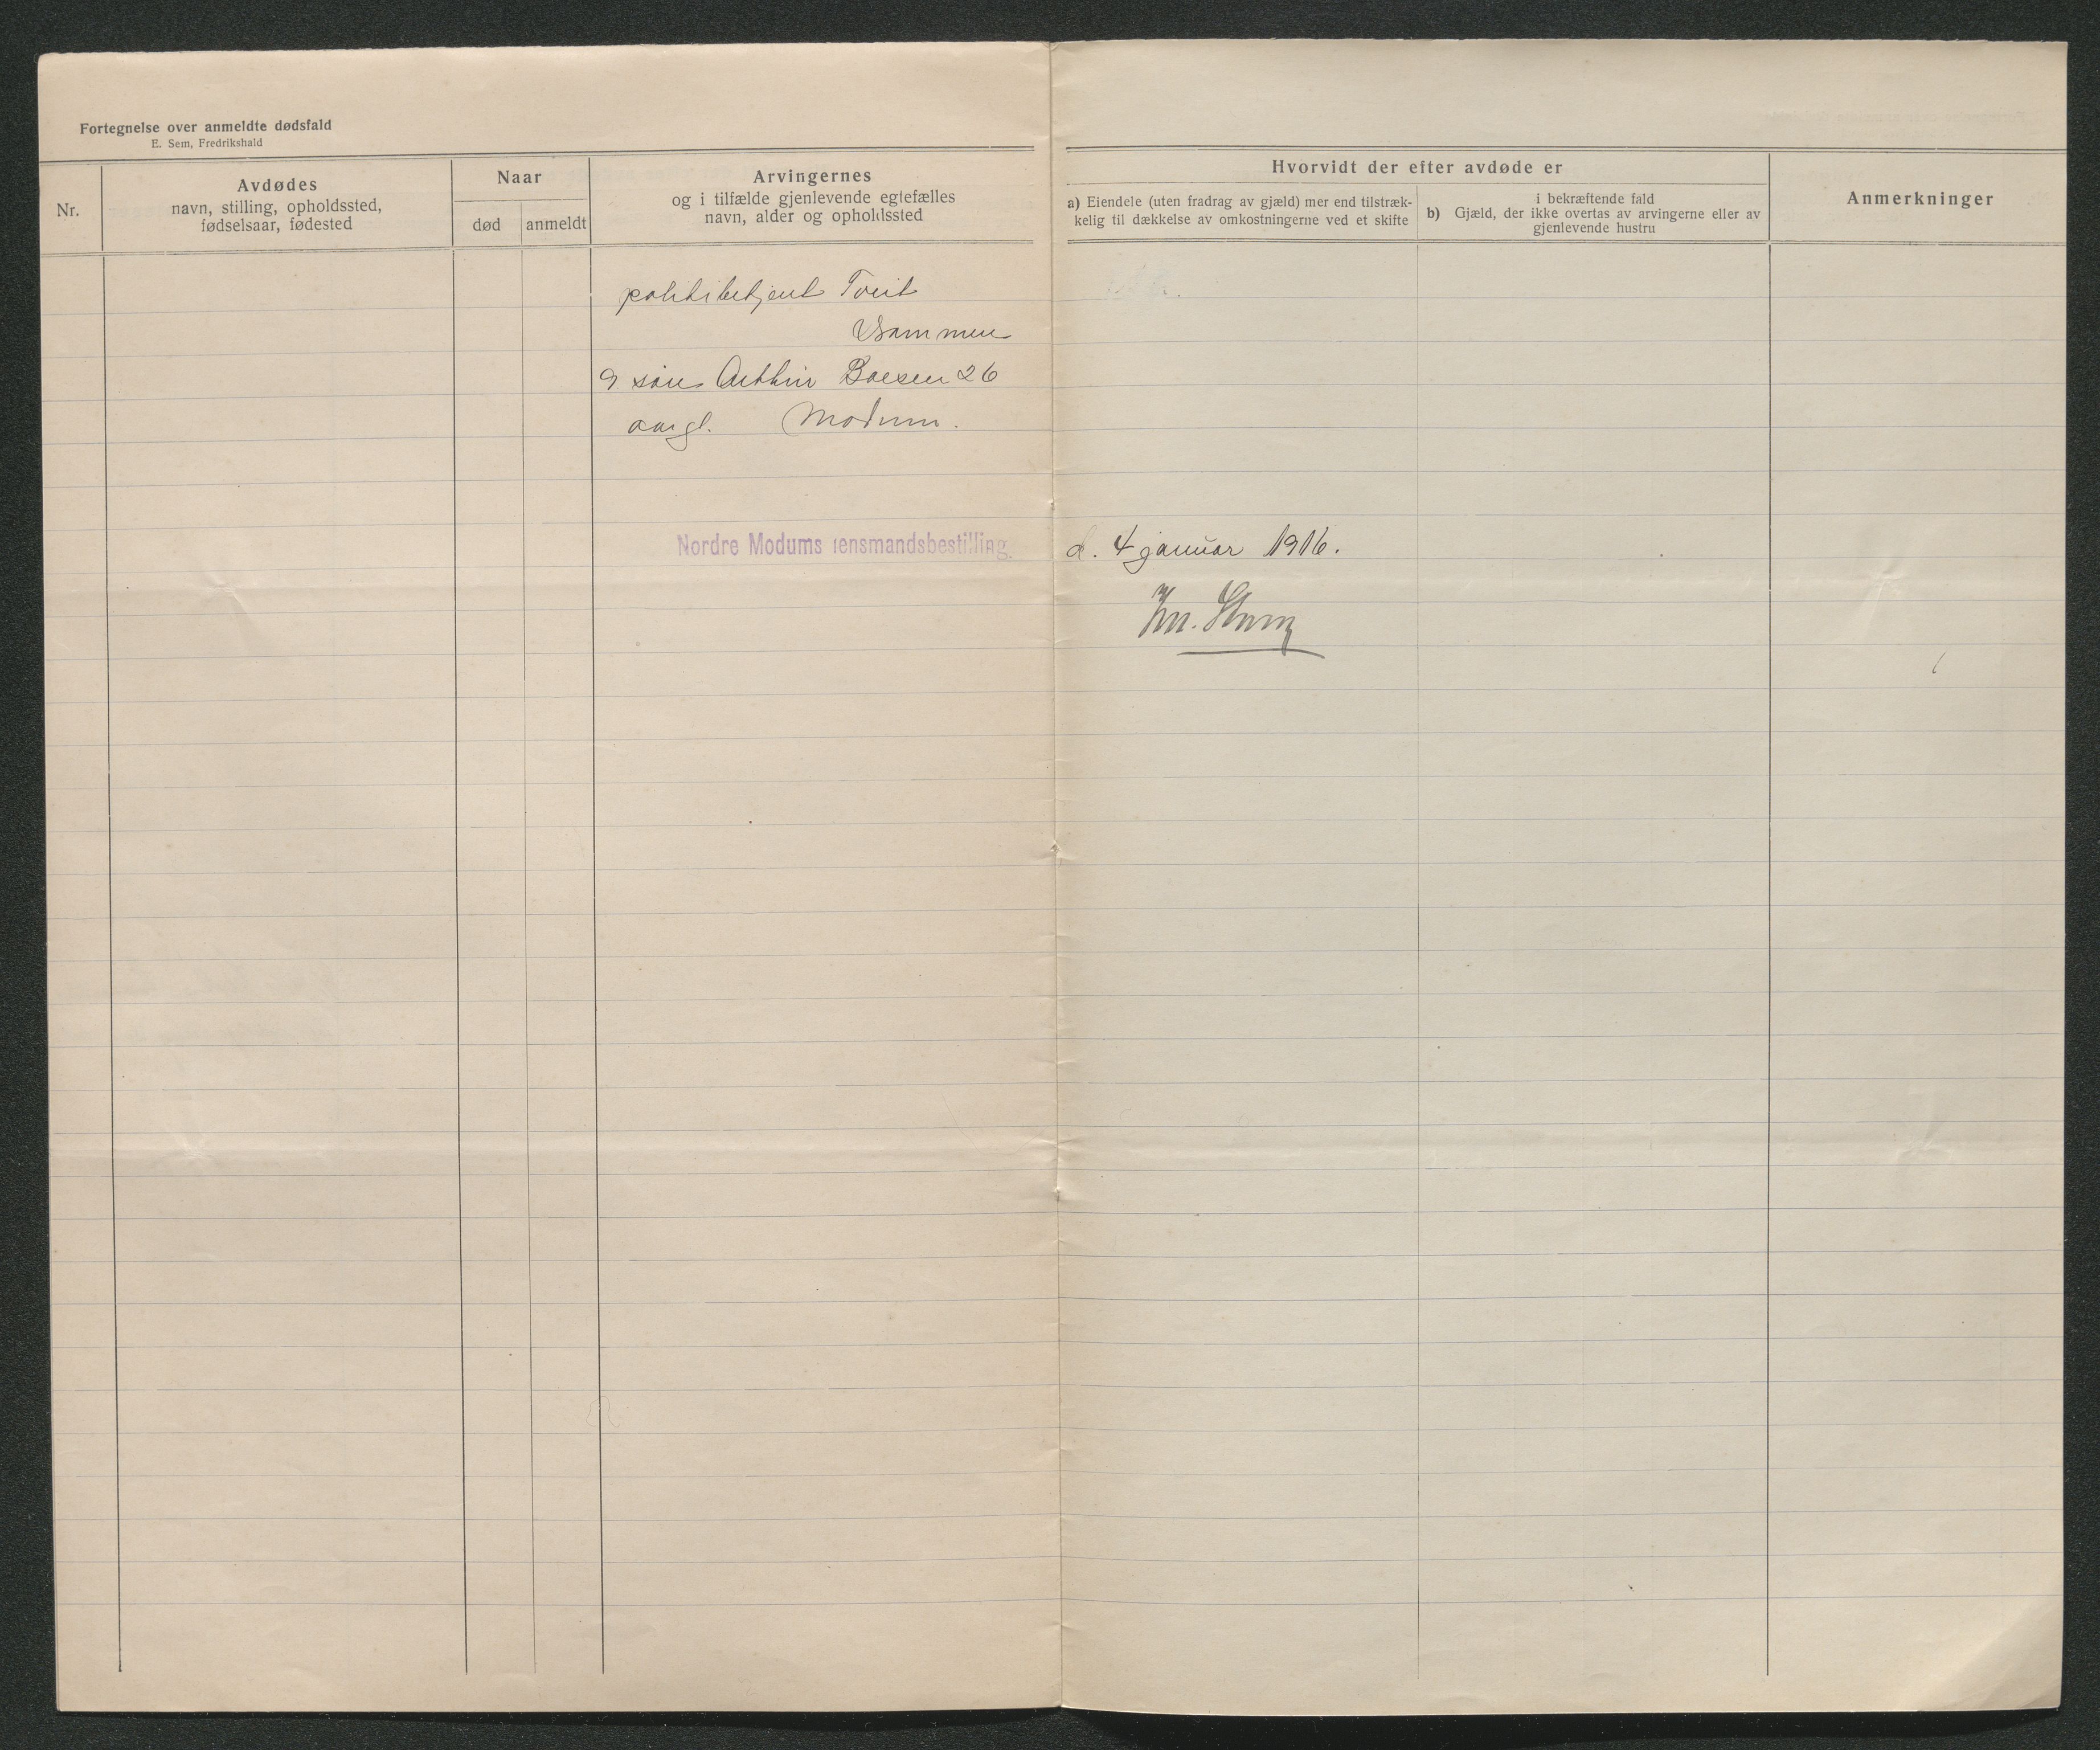 Fortegnelse over anmeldte dødsfald
E. Sem, Fredrikshald
Nr.
Avdødes
navn, stilling, opholdssted,
fødselsaar, fødested
Naar
død
anmeldt
Arvingernes
og i tilfælde gjenlevende egtefælles
navn, alder og opholdssted
Hvorvidt der efter avdøde er
a) Eiendele (uten fradrag av gjæld) mer end tilstræk-
kelig til dækkelse av omkostningerne ved et skifte
i bekræftende fald
b) Gjæld, der ikke overtas av arvingerne eller av
gjenlevende hustru
Anmerkninger
politibetjent Tveit
Drammen
9 søn Arthur Boesen 26
aar gl. Modum.
Nordre Modums lensmandsbestilling.
d. 4 januar 1916.